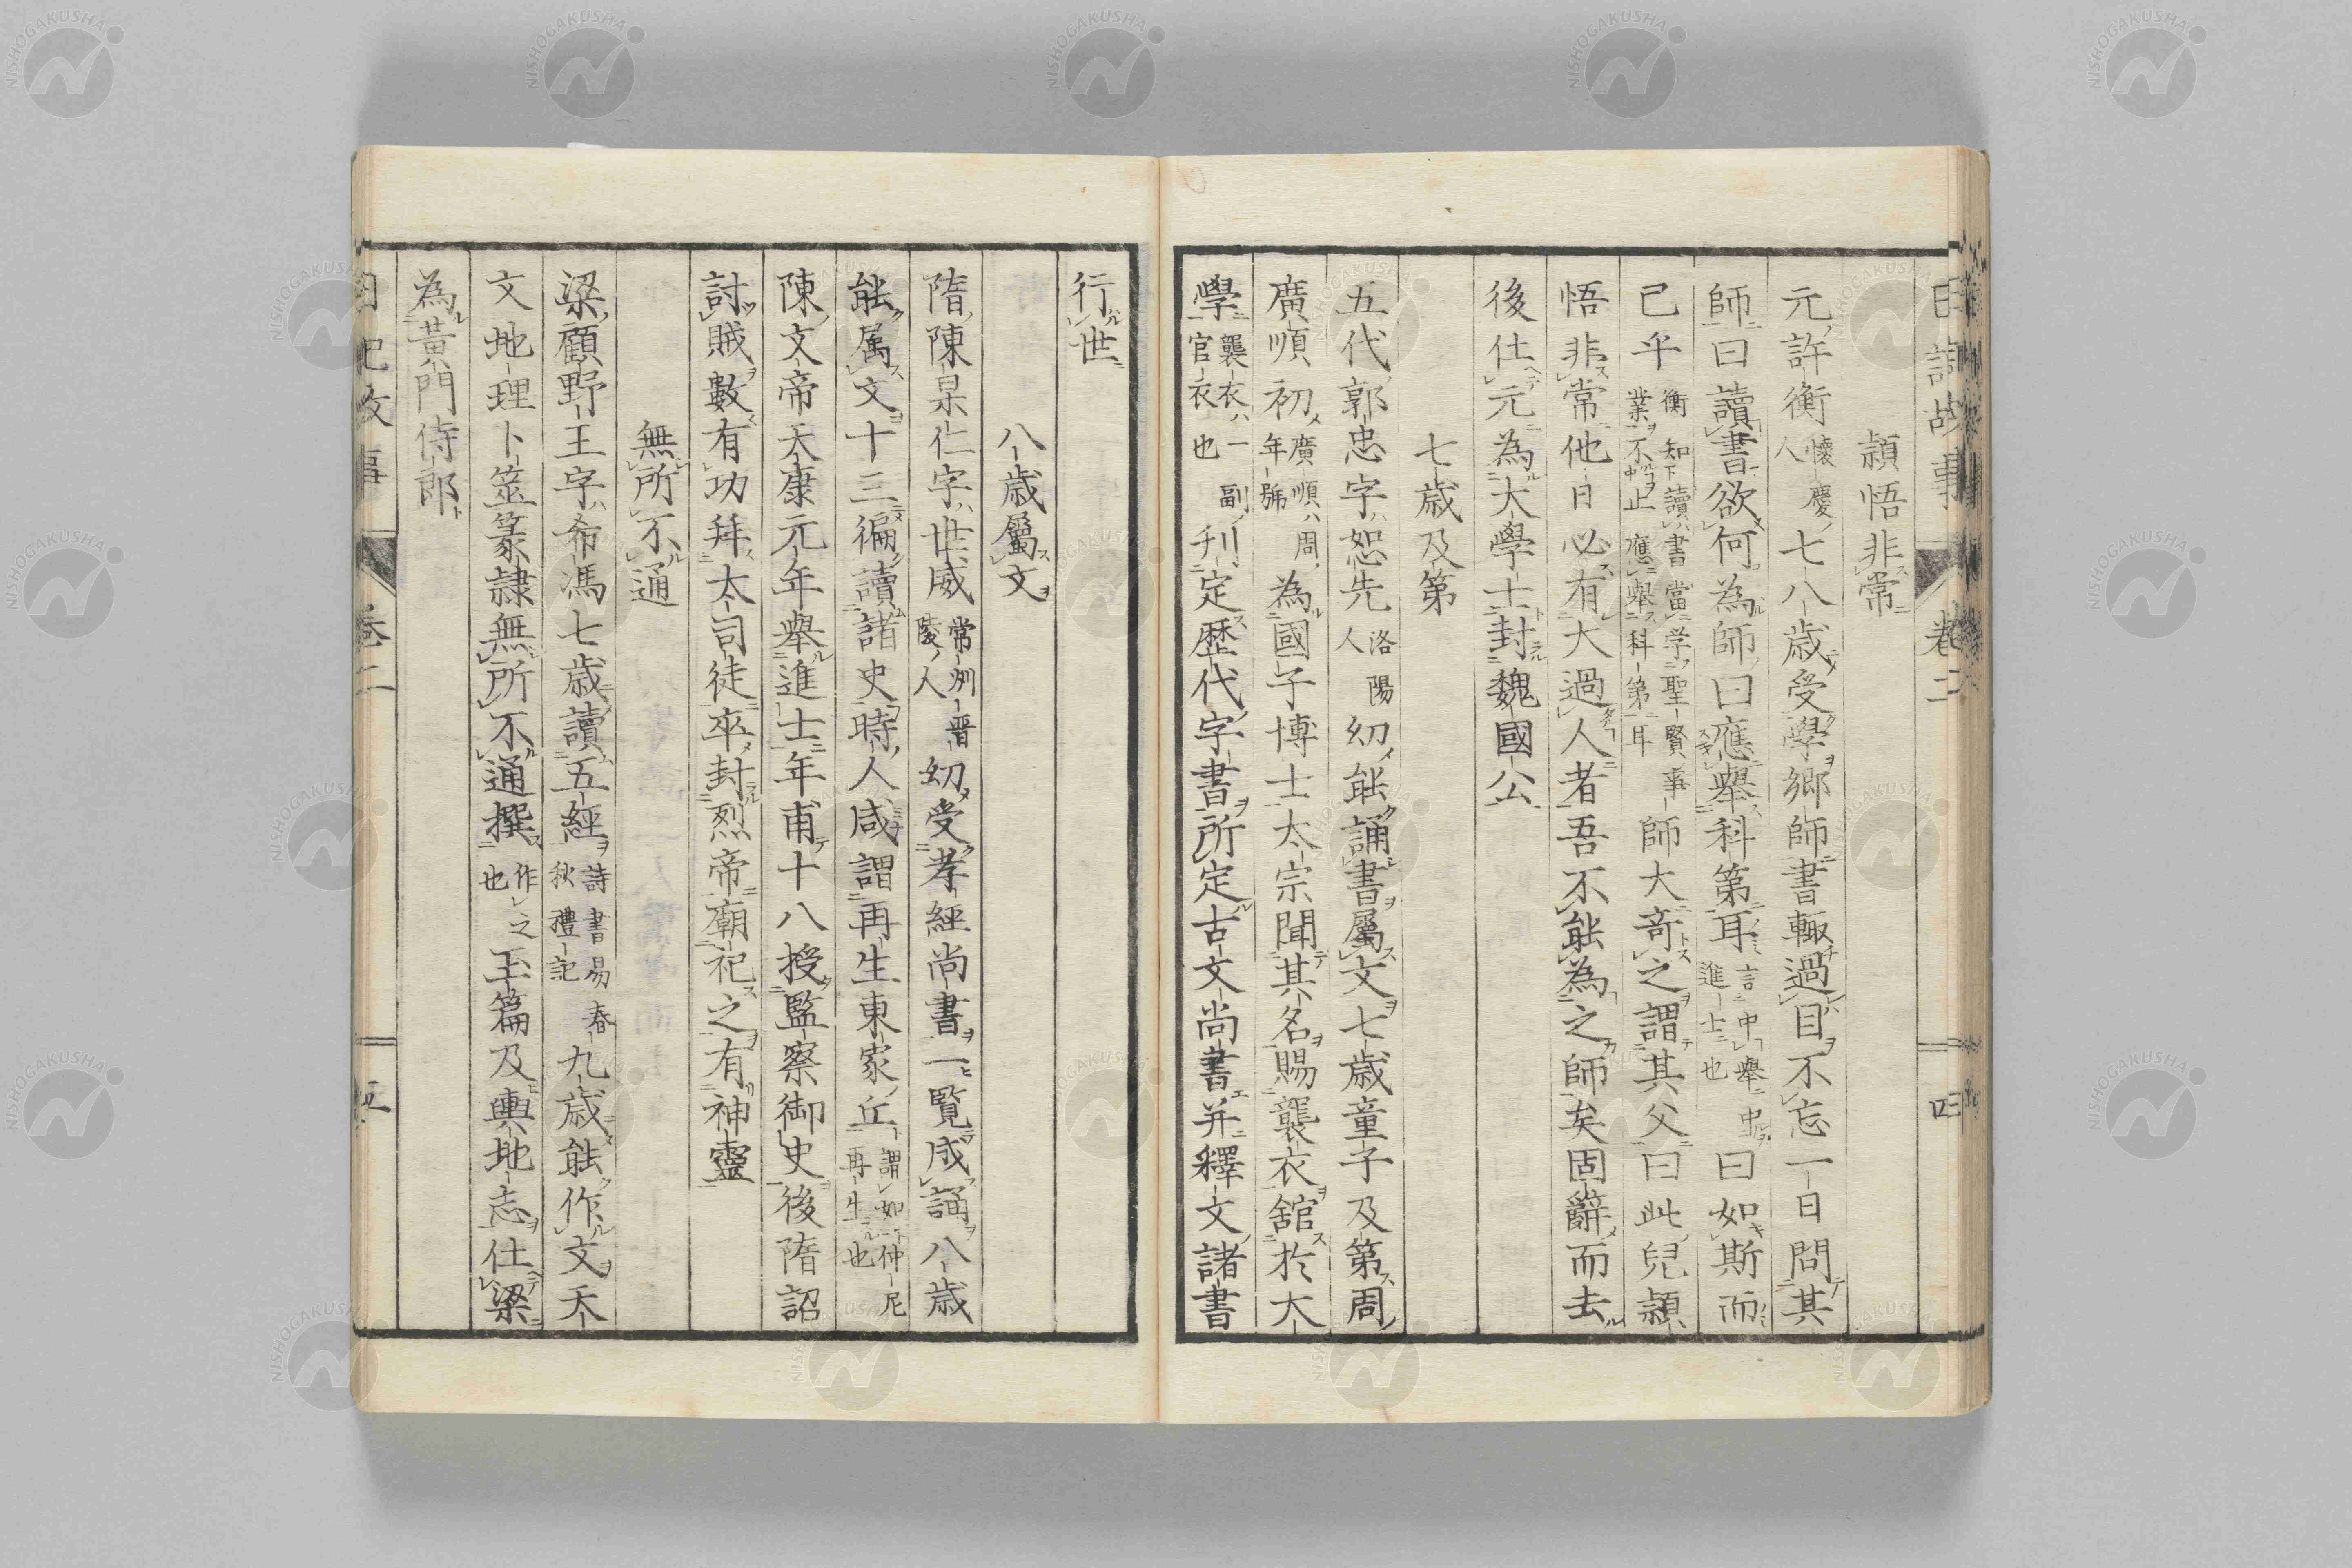 日記故事 卷二 四
穎悟非常
元許衡懷慶人七八歳受學鄉師書輙過目不忘一日問其
師曰讀書欲何為師曰應舉科第耳言中舉中進士也曰如斯而
已乎衡知讀書當学聖賢事業不止應舉科第耳師大奇之謂其父曰此兒穎
悟非常他日必有大過人者吾不能為之師矣固辭而去
後仕元為大學士封魏國公
七歳及第
五代郭忠字恕先洛陽人幼能誦書屬文七歳童子及第周
廣順初廣順周年號為國子博士太宗聞其名賜襲衣舘於大
學襲衣一副官衣也刋定歴代字書所定古文尚書并釋文諸書
行世
八歳屬文
隋陳杲仁字世威常州晋陵人幼受孝經尚書一覧成誦八歳
能属文十三徧讀諸史時人咸謂再生東家丘謂如仲尼再生也
陳文帝天康元年舉進士年甫十八授監察御史後隋詔
討賊數有功拜太司徒卒封烈帝廟祀之有神靈
無所不通
梁顧野王字希馮七歳讀五經詩書易春秋禮記九歳能作文天
文地理卜筮篆隷無所不通撰作之也玉篇及輿地志仕梁
為黃門侍郎
日記故事 卷二 五
NISHOGAKUSHA